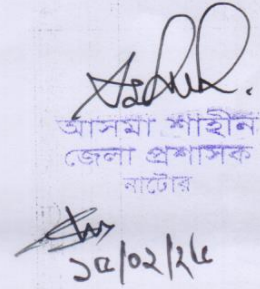 আসমা শাহীন
জেলা প্রশাসক
নাটোর
১৫/০২/২৫